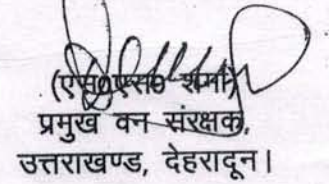 (एस०एस० शर्मा)
प्रमुख वन संरक्षक,
उत्तराखण्ड, देहरादून।